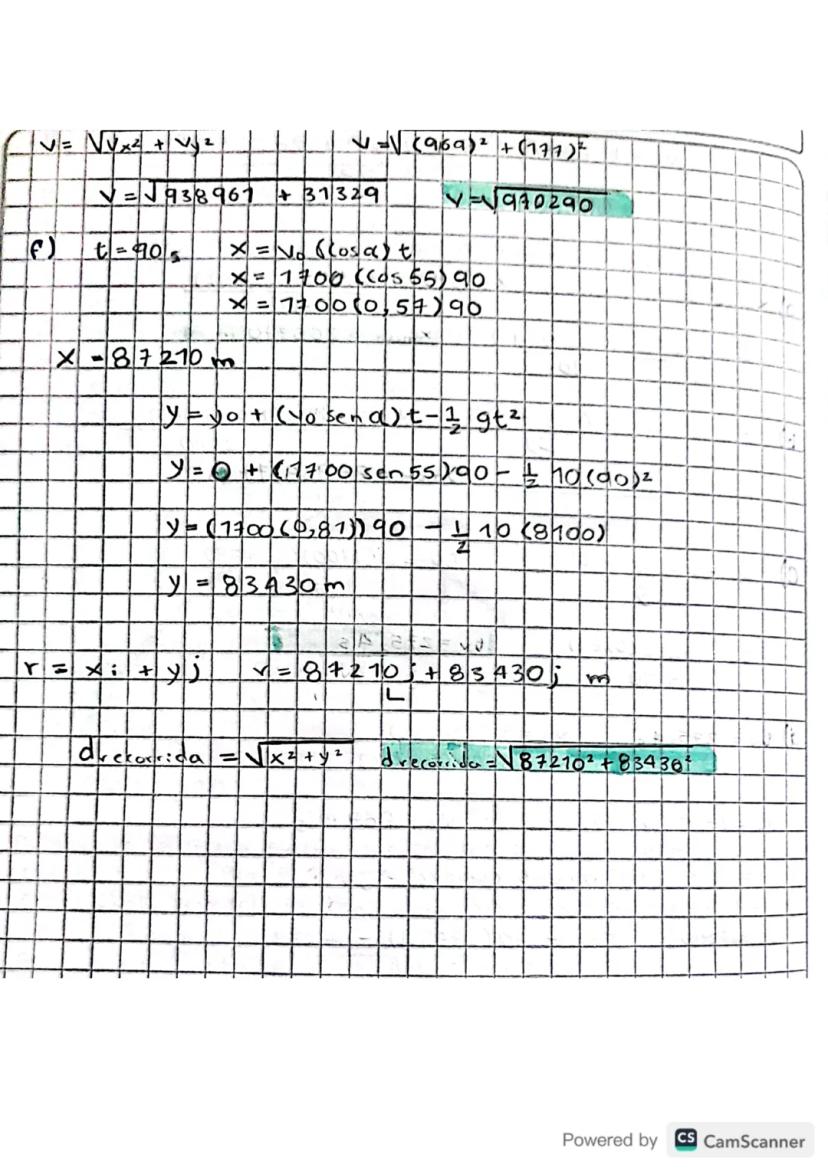 v = √Vx² + Vy²   v = √(969)² + (177)²
v = √938961 + 31329   v = √970290
f) t = 90 s   x = v₀ (cos α) t
x = 1700 (cos 55) 90
x = 1700 (0,57) 90
x = 87210 m
y = y₀ + (v₀ sen α) t - 1/2 gt²
y = 0 + (1700 sen 55) 90 - 1/2 10 (90)²
y = (1700 (0,81)) 90 - 1/2 10 (8100)
y = 83430 m
r = xi + yj   r = 87210i + 83430j m
drecorrida = √x² + y²   drecorrida = √87210² + 83430²
Powered by CS CamScanner